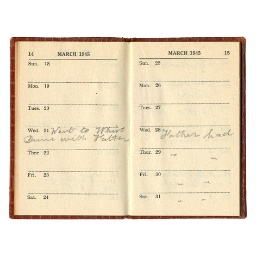 14 MARCH 1945
Sun. 18
Mon. 19
Tues. 20
Wed. 21 Went to Whist
Drive with Father
Thur. 22
Fri. 23
Sat. 24
MARCH 1945 15
Sun. 25
Mon. 26
Tues. 27
Wed. 28 Father had
Thur. 29
Fri. 30
Sat. 31